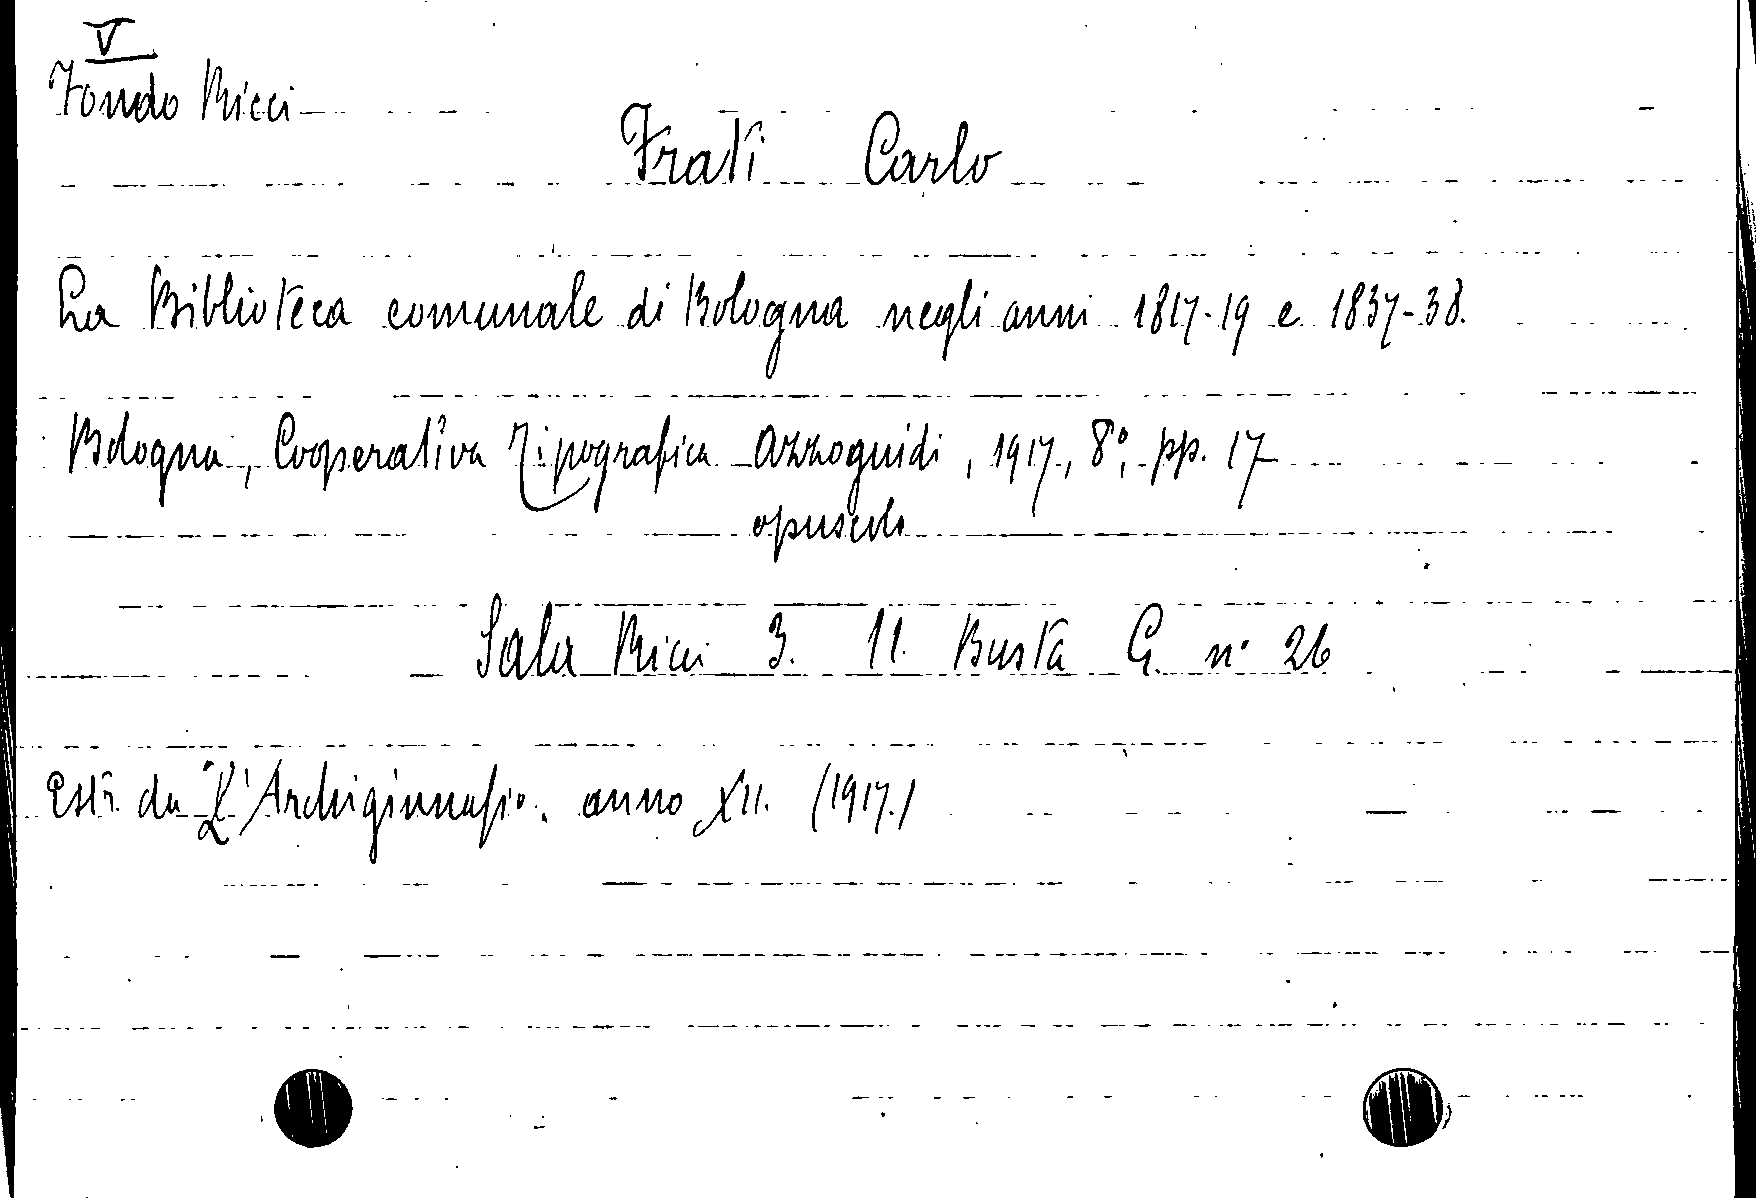 V
Fondo Ricci
Frati Carlo
La Biblioteca comunale di Bologna negli anni 1817-19 e 1837-38.
Bologna, Cooperativa Tipografica Azzoguidi, 1917, 8°, pp. 17
opuscolo
Sala Ricci 3. 11. Busta G. n° 26
Estr. da "L'Archiginnasio. anno XII. (1917.)